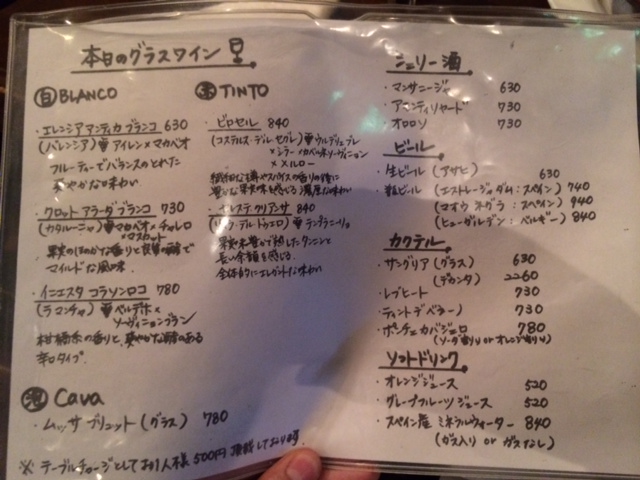 本日のグラスワイン
白 BLANCO
・エレンシア アンティカ ブランコ 630
(バレンシア) アイレン×マカベオ
フルーティーでバランスのとれた
爽やかな味わい
・クロット アラーダ ブランコ 730
(カタルーニャ) マカベオ・チャレロ
×マスカット
果実のほのかな香りと良質の酸で
マイルドな風味
・イニエスタ コラソンロコ 780
(ラ マンチャ) ベルデホ×
ソーヴィニョンブラン
柑橘系の香りと、爽やかな酸のある
辛口タイプ
泡 Cava
・ムッサ ブリュット (グラス) 780
赤 TINTO
・ビロセル 840
(コステルス・デル・セグレ) ウルデュブレ
×シラー×カベルネソーヴィニョン
×メルロー
豊かな果実味を感じる濃厚な味わい
・セレステ クリアンサ 840
(リベラ・デル・ドゥエロ) テンプラニーリョ
果実味豊かで熟したタンニンと
長い余韻を感じる
全体的にエレガントな味わい
※ テーブルチャージとしてお1人様 500円 頂戴しております
シェリー酒
・マンサニージャ 630
・アモンティリャード 730
・オロロソ 730
ビール
・生ビール (アサヒ) 630
・瓶ビール (エストレージャダム:スペイン) 740
(マオウ ネグラ:スペイン) 940
(ヒューガルデン:ベルギー) 840
カクテル
・サングリア (グラス) 630
(デカンタ) 2260
・レブヒート 730
・ティントデベラーノ 730
・ポンチェカバジェロ 780
(ソーダ割り or オレンジ割り)
ソフトドリンク
・オレンジジュース 520
・グレープフルーツ ジュース 520
・スペイン産 ミネラルウォーター 840
(ガス入り or ガスなし)